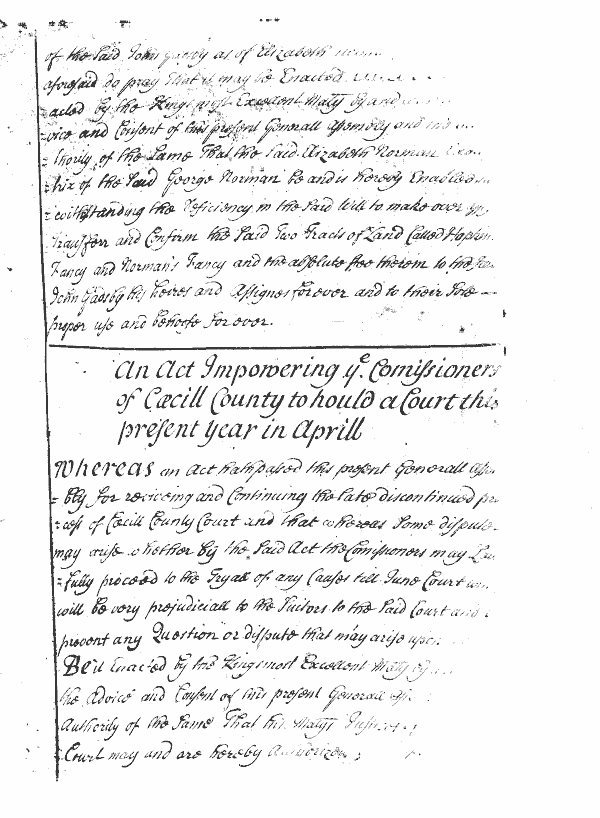 of the Said John Gadsby as of Elizabeth
aforesaid do pray That it may be Enacted
=acted by the Kings most Excellent Maty by and
=vice and Consent of this present Generall Assembly and
=thority of the Same That the Said Elizabeth Norman Exa
=trix of the Said George Norman be and is hereby Enabled
=withstanding the Deficiency in the Said Will to make over
Transferr and Confirm the Said Two Tracts of Land Called
Fancy and Norman's Fancy and the absolute fee therein to the
John Gadsby his heires and Assignes forever and to their Sole —
proper use and behoofe for ever.
An Act Impowering ye. Comissioners
of Cæcill County to hould a Court this
present year in Aprill
Whereas an Act hath passed this present Generall Asse
=bly for reviveing and Continuing the late discontinued pro
=cess of Cæcill County Court and that whereas Some dispute
may arise whether by the Said Act the Comissioners may Law
=fully proceed to the Tryall of any Causes till June Court
will be very prejudiciall to the Suitors to the Said Court and
prevent any Question or dispute that may arise upon
Be it Enacted by the Kings most Excellent Maty by
the Advice and Consent of this present Generall
Authority of the Same That his Matys
Court may and are hereby Authorized